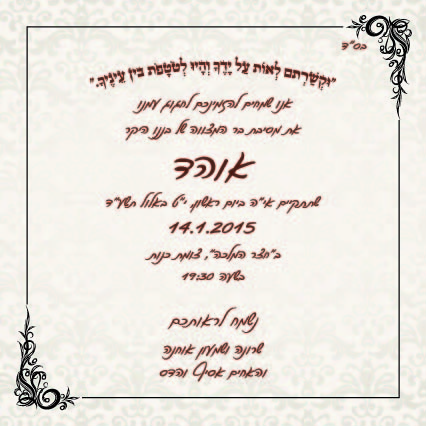 בס"ד
"וּקְשַׁרְתֶּם לְאוֹת עַל יָדֶךָ וְהָיוּ לְטֹטָפֹת בֵּין עֵינֶיךָ."
אנו שמחים להזמינכם לחגוג עמנו
את מסיבת בר המצווה של בננו היקר
אוהד
שתתקיים אי"ה ביום ראשון, י"ט באלול תשע"ד
14.1.2015
ב"חצר המלכה", צומת כנות
בשעה 19:30
נשמח לראותכם
שרונה ושמעון אוחנה
והאחים אסיף והדס